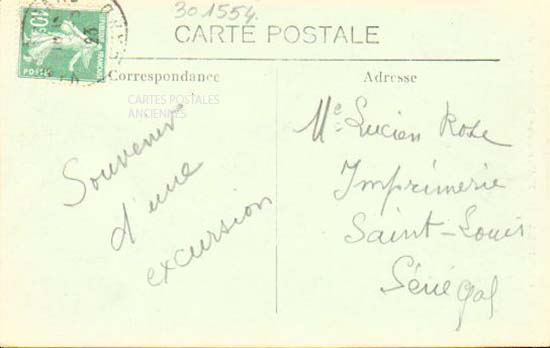 301554.
CARTE POSTALE
Correspondance
Adresse
10c
POSTES
23
CARTES POSTALES
ANCIENNES
Souvenir
d'une
excursion
Mr Lucien Rose
Imprimerie
Saint-Louis
Sénégal